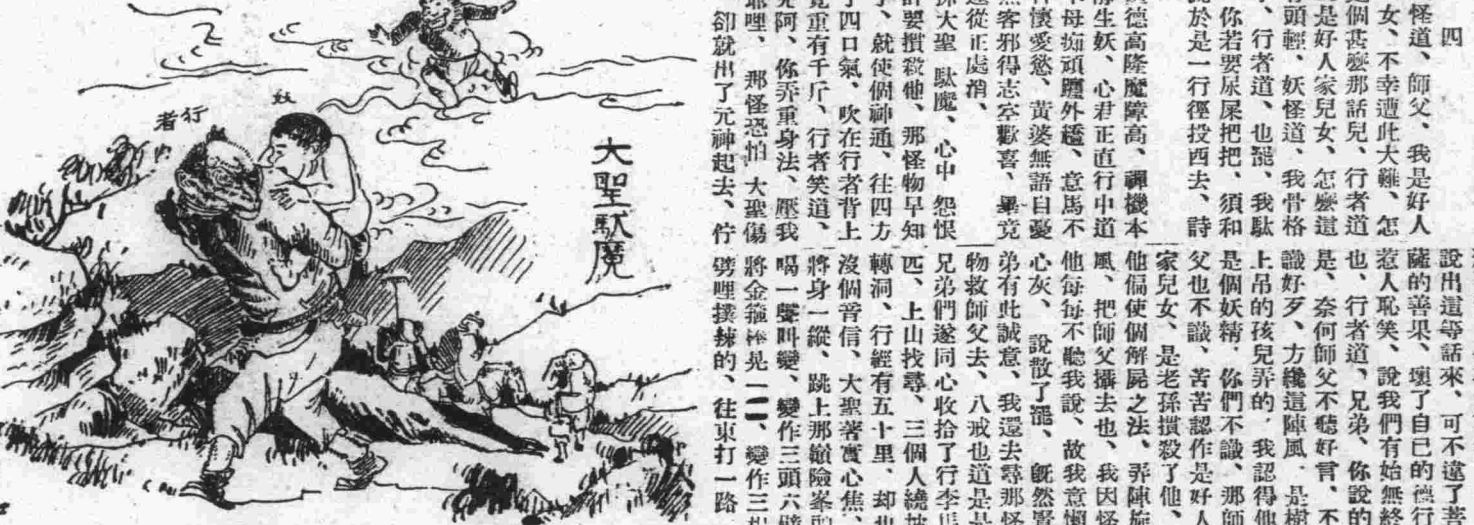 四
怪道、師父、我是好人
女、不幸遭此大難、怎
個甚麼那話兒、行者道
是好人家兒女、怎麼這
頭輕、妖怪道、我骨格
、行者道、也罷、我馱
你若要尿屎把把、須和
於是一行徑投西去、詩
德高隆魔障高、禪機本
靜生妖、心君正直行中道
母痴頑躧外趫、意馬不
懷愛慾、黃婆無語自憂
客邪得志空歡喜、畢竟
從正處消、
孫大聖 馱魔、心中 怨恨
計要摜殺他、那怪物早知
、就使個神通、往四方
了四口氣、吹在行者背上
覺重有千斤、行者笑道、
兒阿、你弄重身法、壓我
爺哩、那怪恐怕 大聖傷
卻就出了元神起去、佇
說出這等話來、可不違了菩
薩的善果、壞了自己的德行
惹人恥笑、說我們有始無終
也、行者道、兄弟、你說的
是、奈何師父不聽好言、不
識好歹、方纔這陣風、是樹
上吊的孩兒弄的、我認得他
是個妖精、你們不識、那師
父也不識、苦苦認作是好人
家兒女、是老孫摜殺了他、
他偏使個解屍之法、弄陣旋
風、把師父攝去也、我因怪
他每每不聽我說、故我意懶
心灰、說散了罷、既然賢
弟有此誠意、我還去尋那怪
物救師父去、八戒也道是是
兄弟們遂同心收拾了行李馬
匹、上山找尋、三個人繞坡
轉洞、行經有五十里、却也
沒個音信、大聖著實心焦、
將身一縱、跳上那巔險峯頭
喝一聲叫變、變作三頭六臂
將金箍棒晃一晃、變作三根
劈哩撲辣的、往東打一路
大聖馱魔
妖
行者